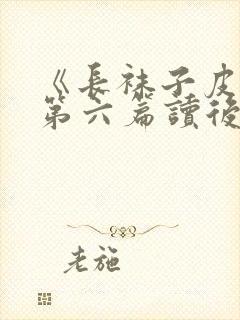 《長袜子皮
第六篇讀後
老施